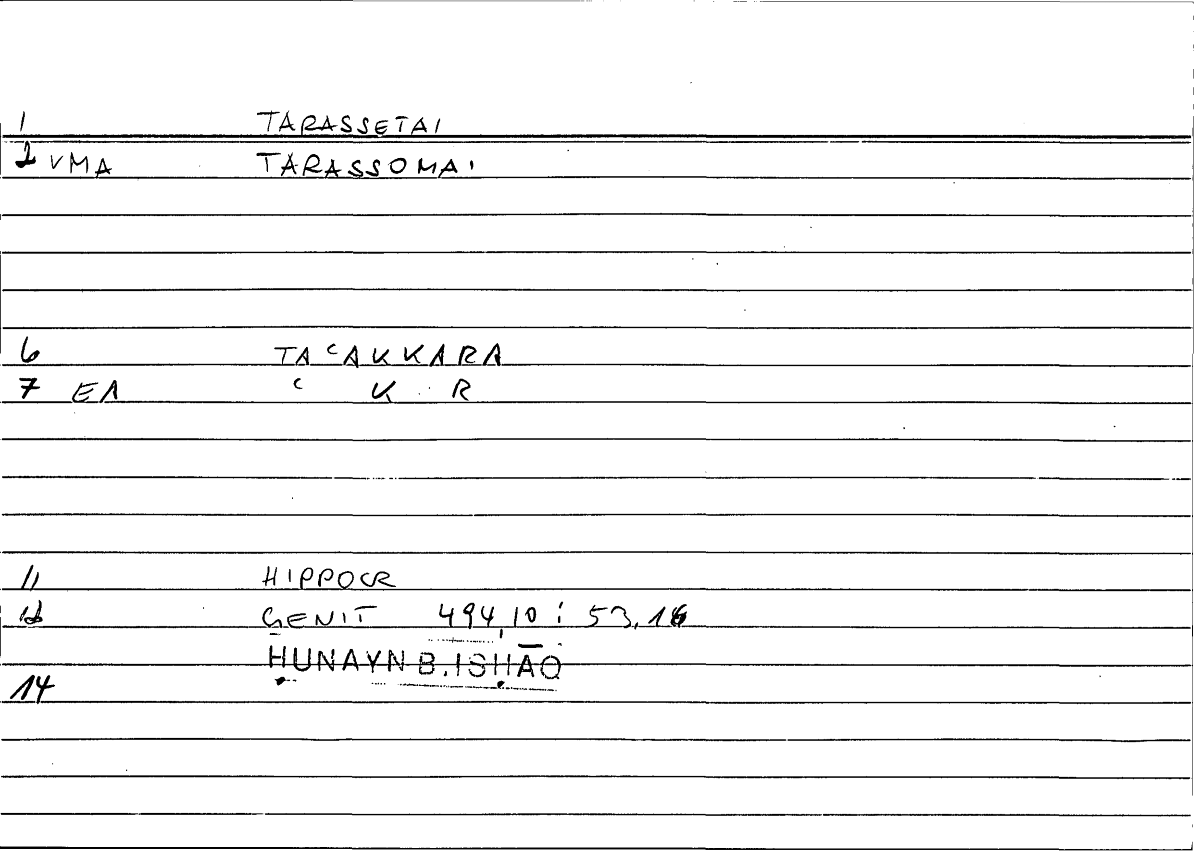 1 TARASSETAI
2 VMA TARASSOMAI
6 TA ʿAKKARA
7 EA ʿ K R
11 HIPPOCR
12 GENIT 494,10 : 53,16
ḤUNAYN B. ISḤĀQ
14